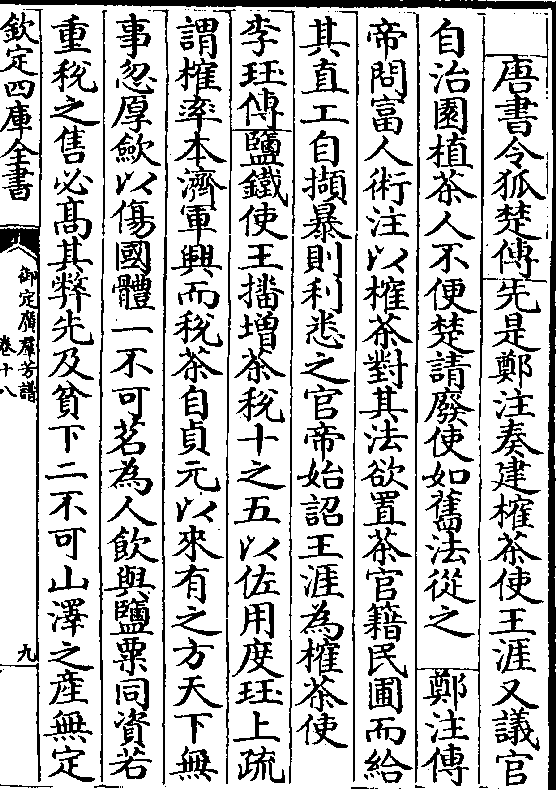 唐書令狐楚傳先是鄭注奏建榷茶使王涯又議官
自治園植茶人不便楚請廢使如舊法從之 鄭注傳
帝問富人術注以榷茶對其法欲置茶官籍民圃而給
其直工自擷暴則利悉之官帝始詔王涯為榷茶使
李珏傳鹽鐵使王播增茶稅十之五以佐用度珏上疏
謂榷率本濟軍興而稅茶自貞元以來有之方天下無
事忽厚歛以傷國體一不可茗為人飲與鹽粟同資若
重稅之售必髙其弊先及貧下二不可山澤之產無定
欽定四庫全書
御定廣羣芳譜
卷十八
九